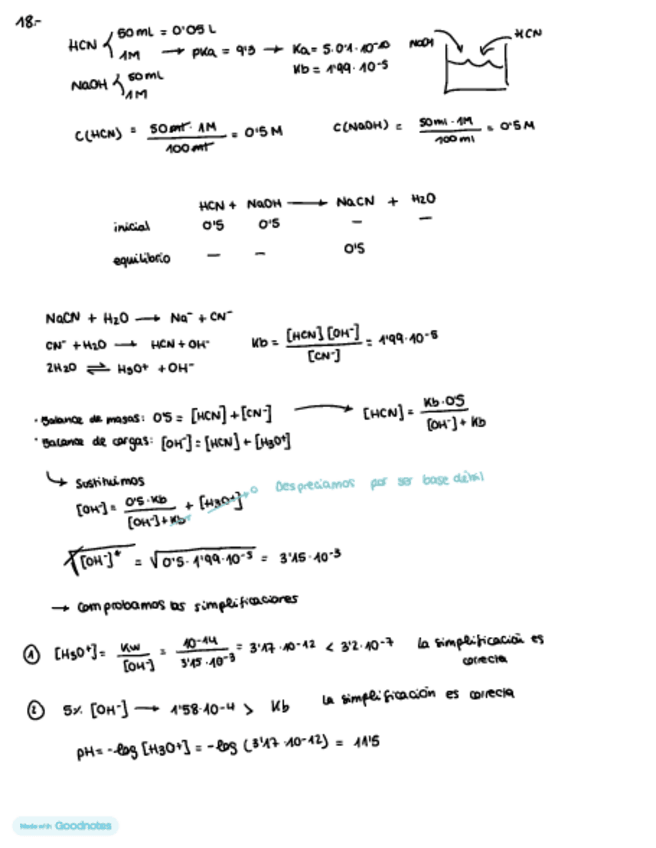 18.-
HCN { 50mL = 0'05 L
1M → pKa = 9'3 → Ka = 5.01·10⁻¹⁰
Kb = 1'99·10⁻⁵
NaOH HCN
NaOH { 50mL
1M
C(HCN) = 50ml · 1M / 100ml = 0'5 M
C(NaOH) = 50ml · 1M / 100ml = 0'5 M
HCN + NaOH → NaCN + H2O
inicial 0'5 0'5 — —
equilibrio — — 0'5
NaCN + H2O → Na⁻ + CN⁻
CN⁻ + H2O → HCN + OH⁻
2H2O ⇌ H3O⁺ + OH⁻
Kb = [HCN][OH⁻] / [CN⁻] = 1'99·10⁻⁵
· Balance de masas: 0'5 = [HCN] + [CN⁻] → [HCN] = Kb·0'5 / [OH⁻] + Kb
· Balance de cargas: [OH⁻] = [HCN] + [H3O⁺]
↳ Sustituimos
[OH⁻] = 0'5·Kb / [OH⁻] + Kb + [H3O⁺] → 0 Despreciamos por ser base débil
√[OH⁻]² = √0'5·1'99·10⁻⁵ = 3'15·10⁻³
→ Comprobamos las simplificaciones
① [H3O⁺] = Kw / [OH⁻] = 10⁻¹⁴ / 3'15·10⁻³ = 3'17·10⁻¹² < 3'2·10⁻⁷ la simplificación es correcta
② 5% [OH⁻] → 1'58·10⁻⁴ > Kb la simplificación es correcta
pH = -log [H3O⁺] = -log (3'17·10⁻¹²) = 11'5
Made with Goodnotes